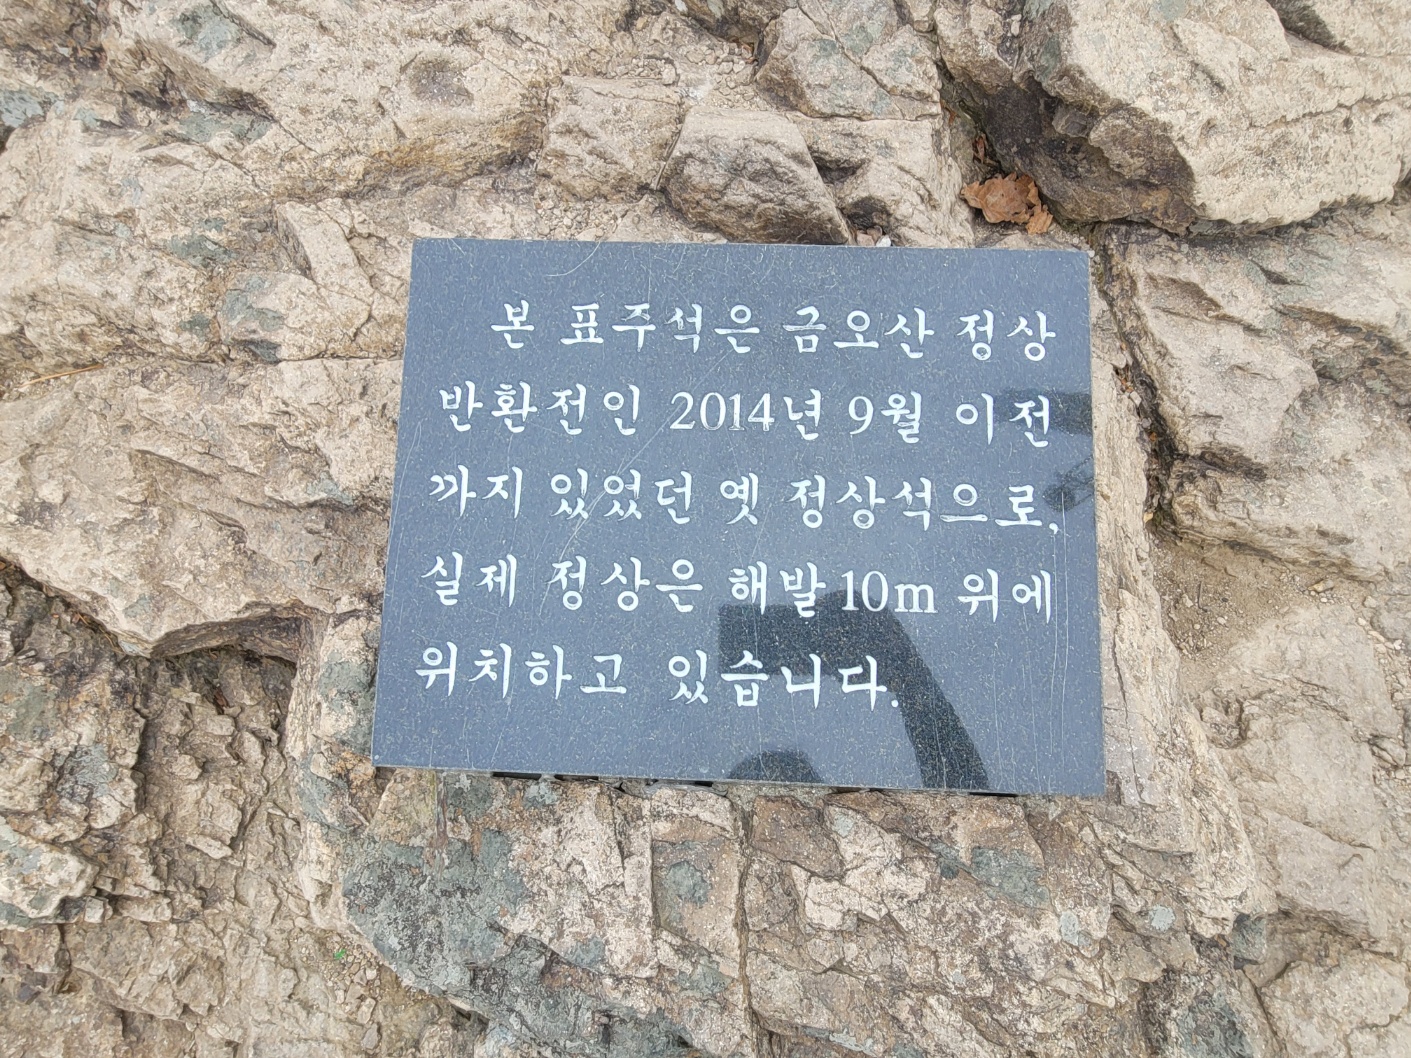 본 표주석은 금오산 정상
반환전인 2014년 9월 이전
까지 있었던 옛 정상석으로,
실제 정상은 해발10m 위에
위치하고 있습니다.